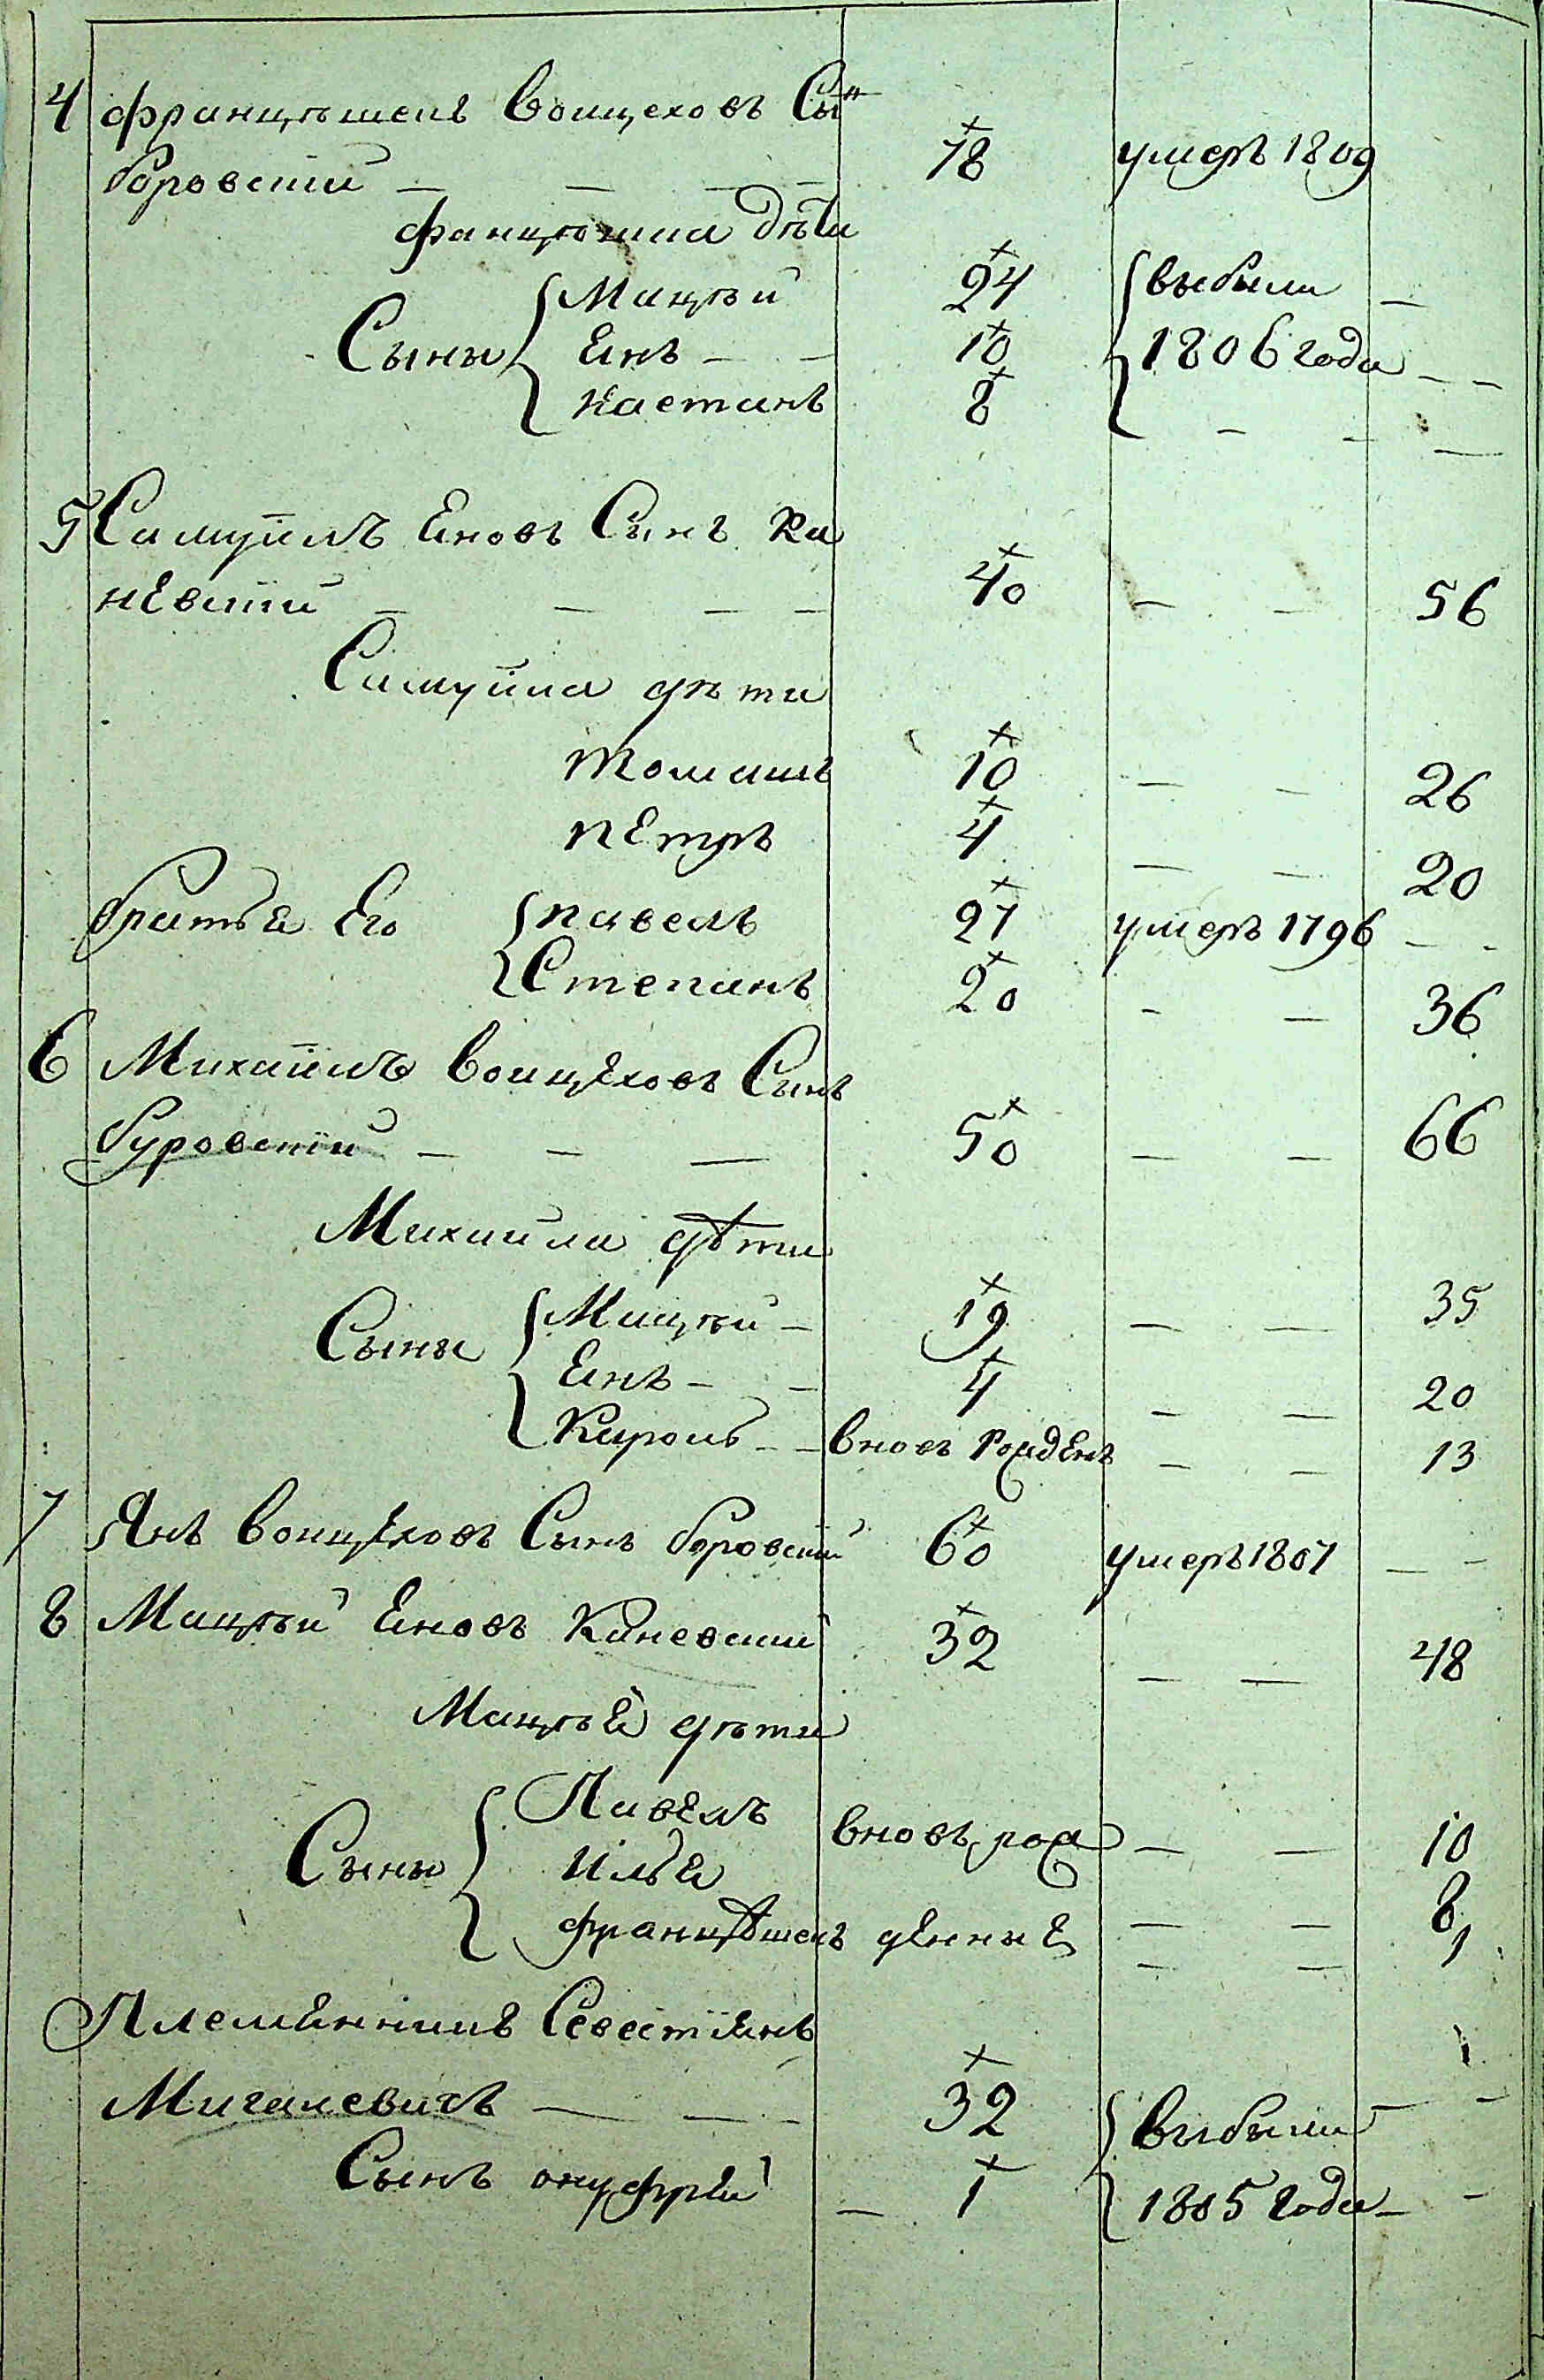 4 Францѣшекъ Воицеховъ Сынъ
Боровскій — — — — 78 умеръ 1809
Фанцѣшка дѣти
Мацѣй 24 выбыли —
Сыны Янъ — — 10 1806 года — —
Каетанъ 8 — — —
5 Самуйлъ Яновъ Сынъ Ка
невскій — — — — 40 — — 56
Самуйла дѣти
Томашъ 10 — — 26
Петръ 4 — — 20
братья Его Павелъ 27 умеръ 1796 — -
Степанъ 20 - — 36
6 Михайлъ Воицеховъ Сынъ
Буровскій — — — 50 — — 66
Михайла дѣти
Мацѣй — 19 — — 35
Сыны Янъ — — 4 — — 20
Кароль — — вновь рожденъ — — 13
7 Янъ Воицеховъ Сынъ боровскій 60 умеръ 1807 — —
8 Мацѣй Яновъ Каневский 32 — — 48
Мацѣя дѣти
Павелъ вновь рож — — 10
Сыны Илья
Францѣшекъ денные — — 8
— — 1
Племянникъ Севестіянъ
Мигалевичъ — — - 32 выбыли — —
Сынъ онуфрей — 1 1805 Года — -